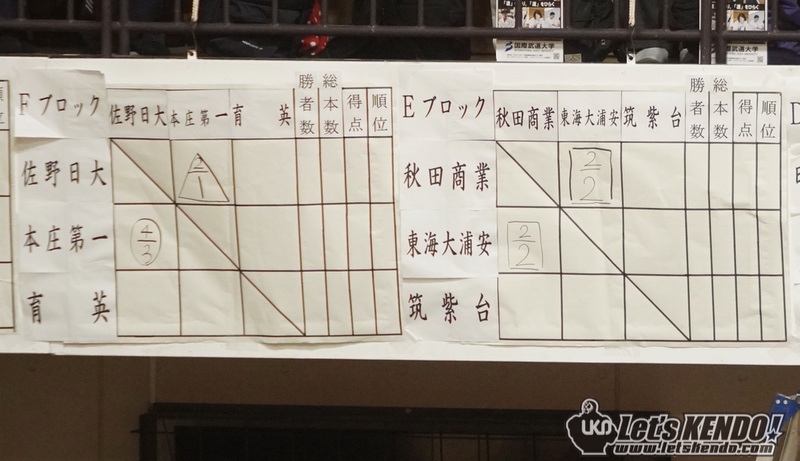 国際武道大学
Fブロック 佐野日大 本庄第一 育英 勝者数 総本数 得点 順位
佐野日大 2/1
本庄第一 4/3
育英
Eブロック 秋田商業 東海大浦安 筑紫台 勝者数 総本数 得点 順位
秋田商業 2/2
東海大浦安 2/2
筑紫台
LKD Let's KENDO!
www.letskendo.com